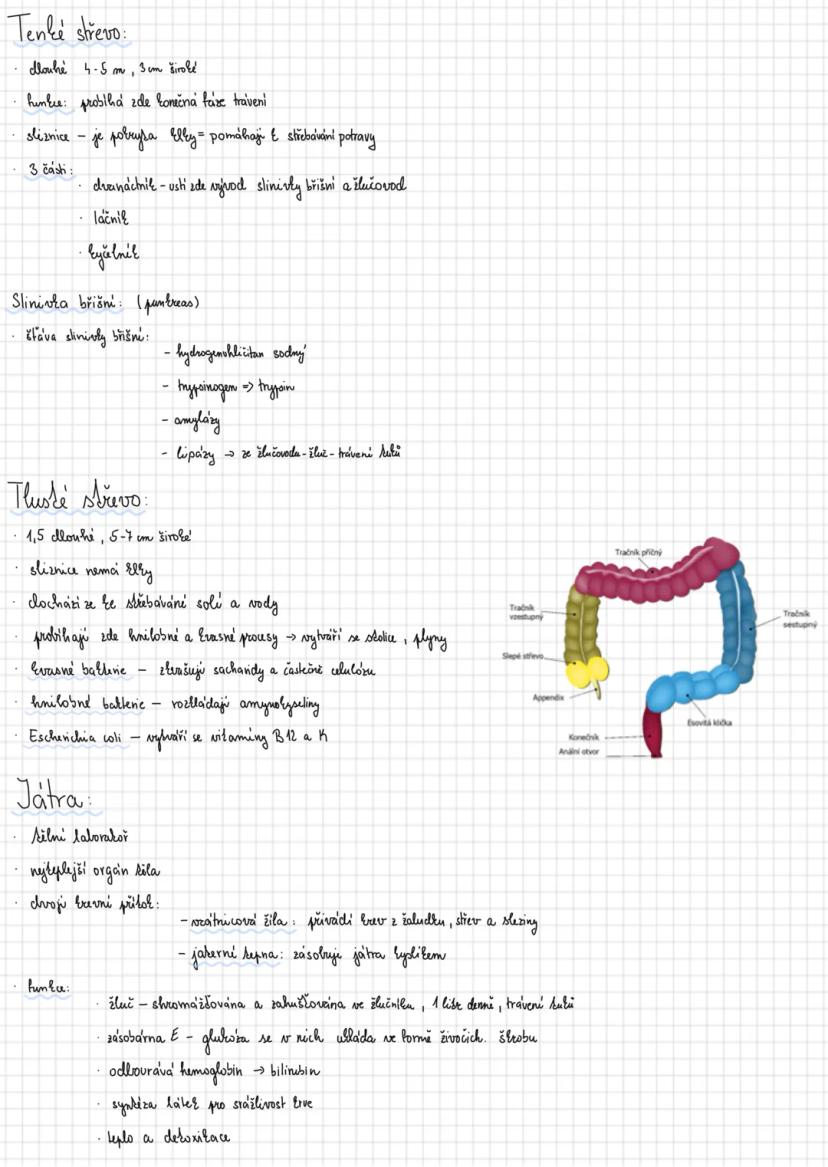 Tenké střevo:
· dlouhé 4-5 m, 3 cm široké
· funkce: probíhá zde konečná fáze trávení
· sliznice - je pokryta klky = pomáhají k střebávání potravy
· 3 části:
· dvanáctník - ústí zde vývod slinivky břišní a žlučovod
· lačník
· kyčelník
Slinivka břišní: (pankreas)
· šťáva slinivky břišní:
- hydrogenuhličitan sodný
- trypsinogen => trypsin
- amylázy
- lipázy → ze žlučovodu - žluč - trávení tuků
Tlusté střevo:
· 1,5 dlouhé, 5-7 cm široké
· sliznice nemá klky
· dochází ze ke střebávání solí a vody
· probíhají zde hnilobné a kvasné procesy → vytváří se stolice, plyny
· kvasné bakterie - zkvašují sacharidy a částečně celulózu
· hnilobné bakterie - rozkládají amynokyseliny
· Escherichia coli - vytváří se vitamíny B12 a K
Tračník příčný
Tračník
vzestupný
Tračník
sestupný
Slepé střevo
Appendix
Esovitá klička
Konečník
Anální otvor
Játra:
· tělní laboratoř
· nejteplejší orgán těla
· dvojí krevní přítok:
- vrátnicová žíla: přivádí krev z žaludku, střev a sleziny
- jaterní tepna: zásobuje játra kyslíkem
· funkce:
· žluč - shromážďována a zahušťována ve žlučníku, 1 litr denně, trávení tuků
· zásobárna E - glukóza se v nich ukládá ve formě živočich. škrobu
· odbourává hemoglobin → bilirubin
· syntéza látek pro srážlivost krve
· teplo a detoxikace